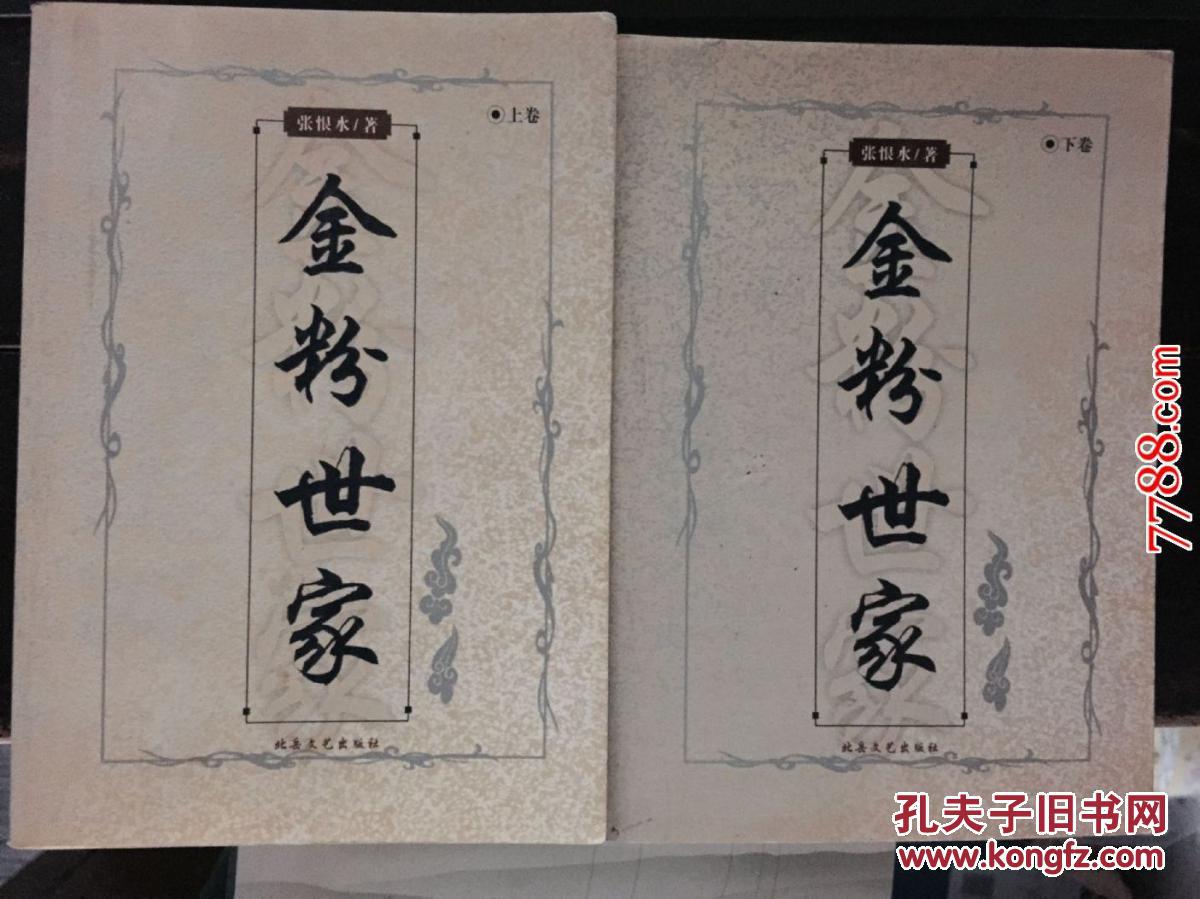 张恨水/著
上卷
金粉世家
北岳文艺出版社
张恨水/著
下卷
金粉世家
北岳文艺出版社
7788.com
孔夫子旧书网
www.kongfz.com